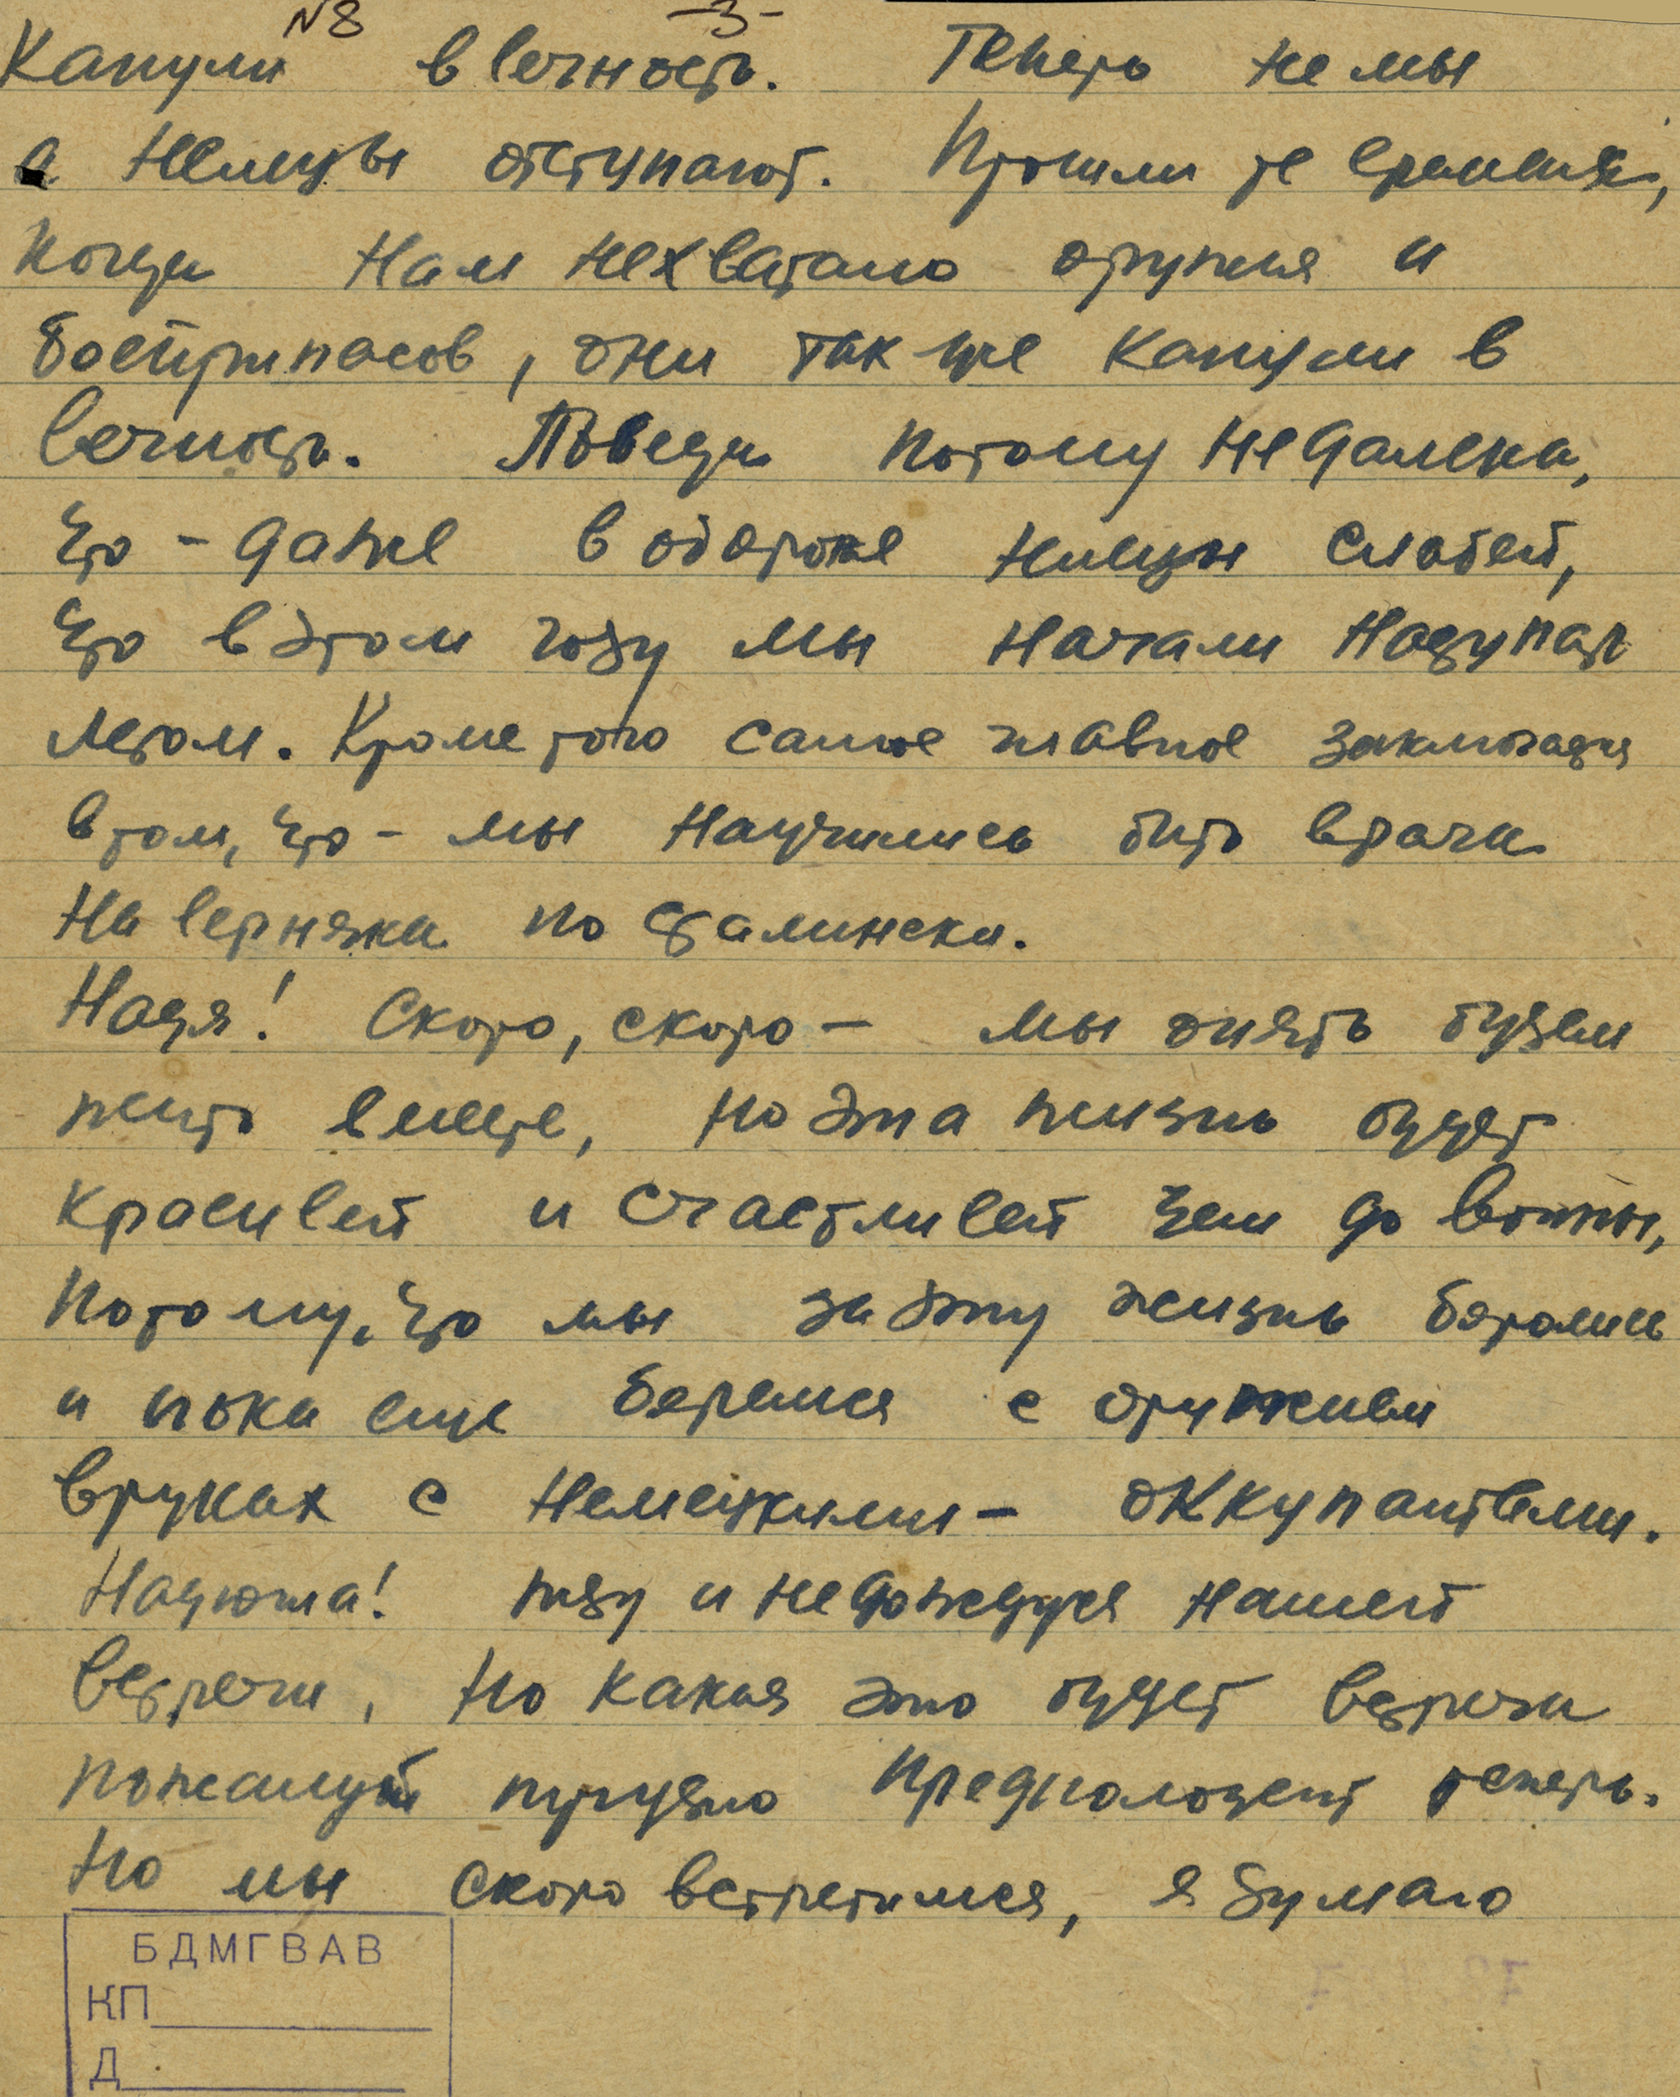 N8 -3-
Канули в вечность. Теперь не мы
а немцы отступают. Прошли те времена,
когда нам нехватало оружия и
боеприпасов, они так же канули в
вечность. Победа потому недалека,
что - даже в обороне немцы слабей,
что в этом году мы начали наступать
летом. Кроме того самое главное заключается
в том, что - мы научились бить врага
на верняка по сталински.
Надя! Скоро, скоро - мы опять будем
жить вместе, но эта жизнь будет
красивей и счастливей чем до войны,
потому, что мы за эту жизнь боролись
и пока еще боремся с оружием
в руках с немецкими - оккупантами.
Надюша! жду и недождуся нашей
встречи, но какая это будет встреча
пожалуй трудно предположить теперь.
Но мы скоро встретимся, я думаю
БДМГВАВ
КП
Д